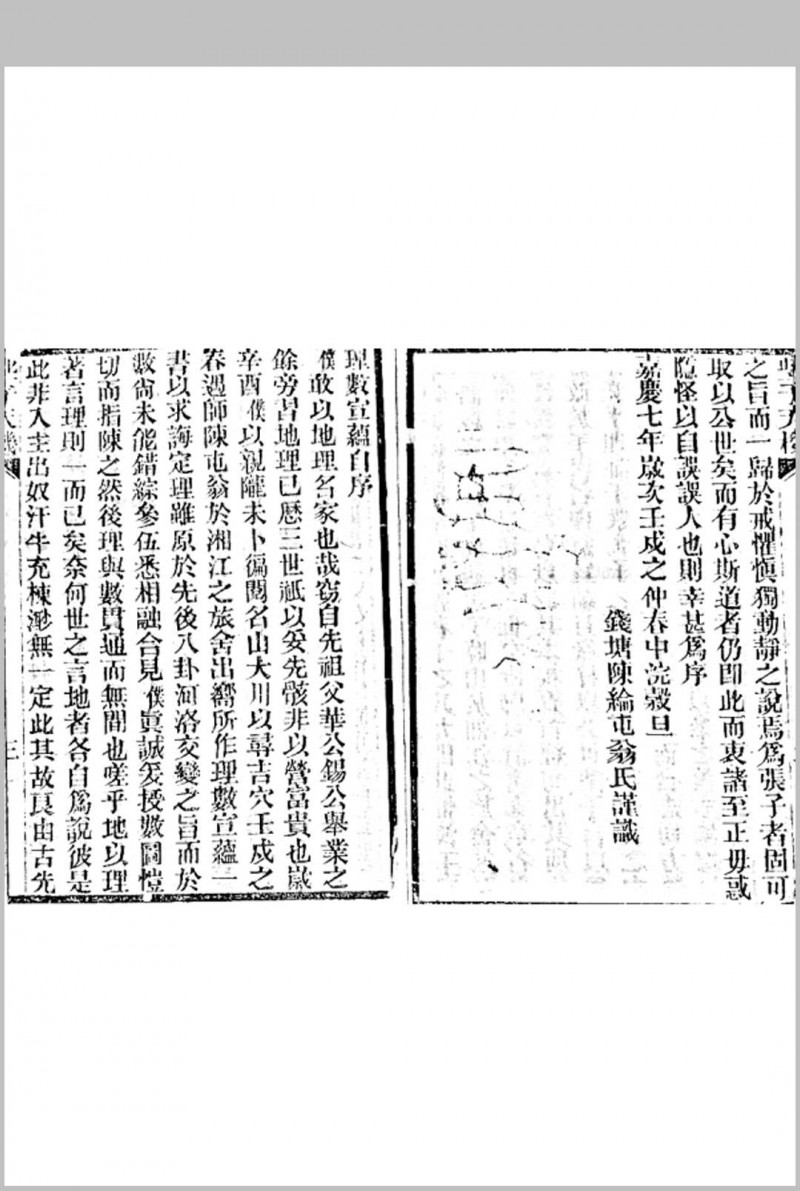 之旨而一歸於戒懼慎獨動靜之說焉為張子者固可
取以公世矣而有心斯道者仍即此而衷諸至正毋惑
隱怪以自誤誤人也則幸甚為序
嘉慶七年歲次壬戌之仲春中浣穀旦
錢塘陳綸屯翁氏謹識
理數宣蘊自序
僕敢以地理名家也哉竊自先祖父華公錫公舉業之
餘旁習地理已歷三世祇以妥先骸非以營富貴也歲
辛酉僕以親隴未卜徧閱名山大川以尋吉穴壬戌之
春遇師陳屯翁於湘江之旅舍出嚮所作理數宣蘊一
書以求誨定理雖原於先後八卦河洛交變之旨而於
數尚未能錯綜參伍悉相融合見僕真誠爰授數圖愷
切而指陳之然後理與數貫通而無間也嗟乎地以理
著言理則一而已矣奈何世之言地者各自為說彼是
此非入主出奴汗牛充棟渺無一定此其故良由古先
三